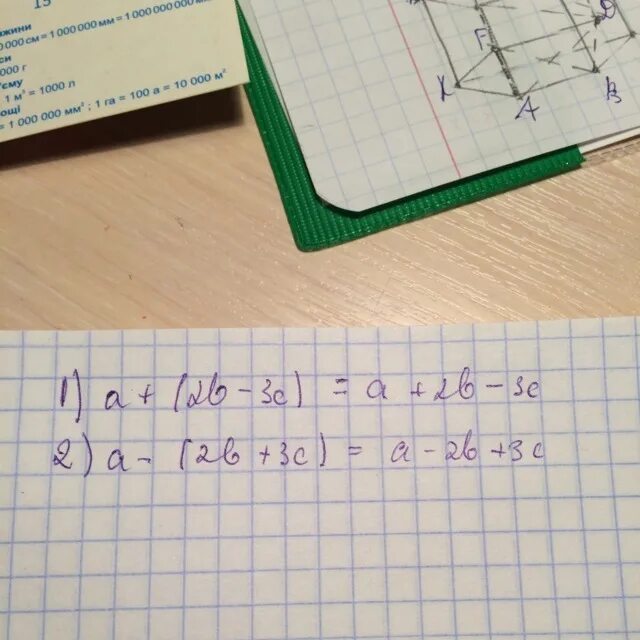 15
жини
000 см = 1 000 000 мм = 1 000 000 000 м
си
000 г
ему
1 м³ = 1000 л
ощі
= 1 000 000 мм² ; 1 га = 100 а = 10 000 м²
F
K
A
B
D
1) a + (2b - 3c) = a + 2b - 3c
2) a - (2b + 3c) = a - 2b + 3c